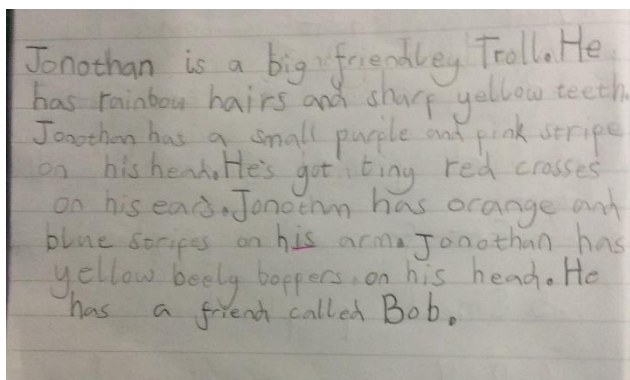 Jonothan is a big friendley Troll. He
has rainbow hairs and sharp yellow teeth.
Jonothan has a small purple and pink stripe
on his head. He's got tiny red crosses
on his ears. Jonothan has orange and
blue stripes on his arm. Jonothan has
yellow beely boppers on his head. He
has a friend called Bob.